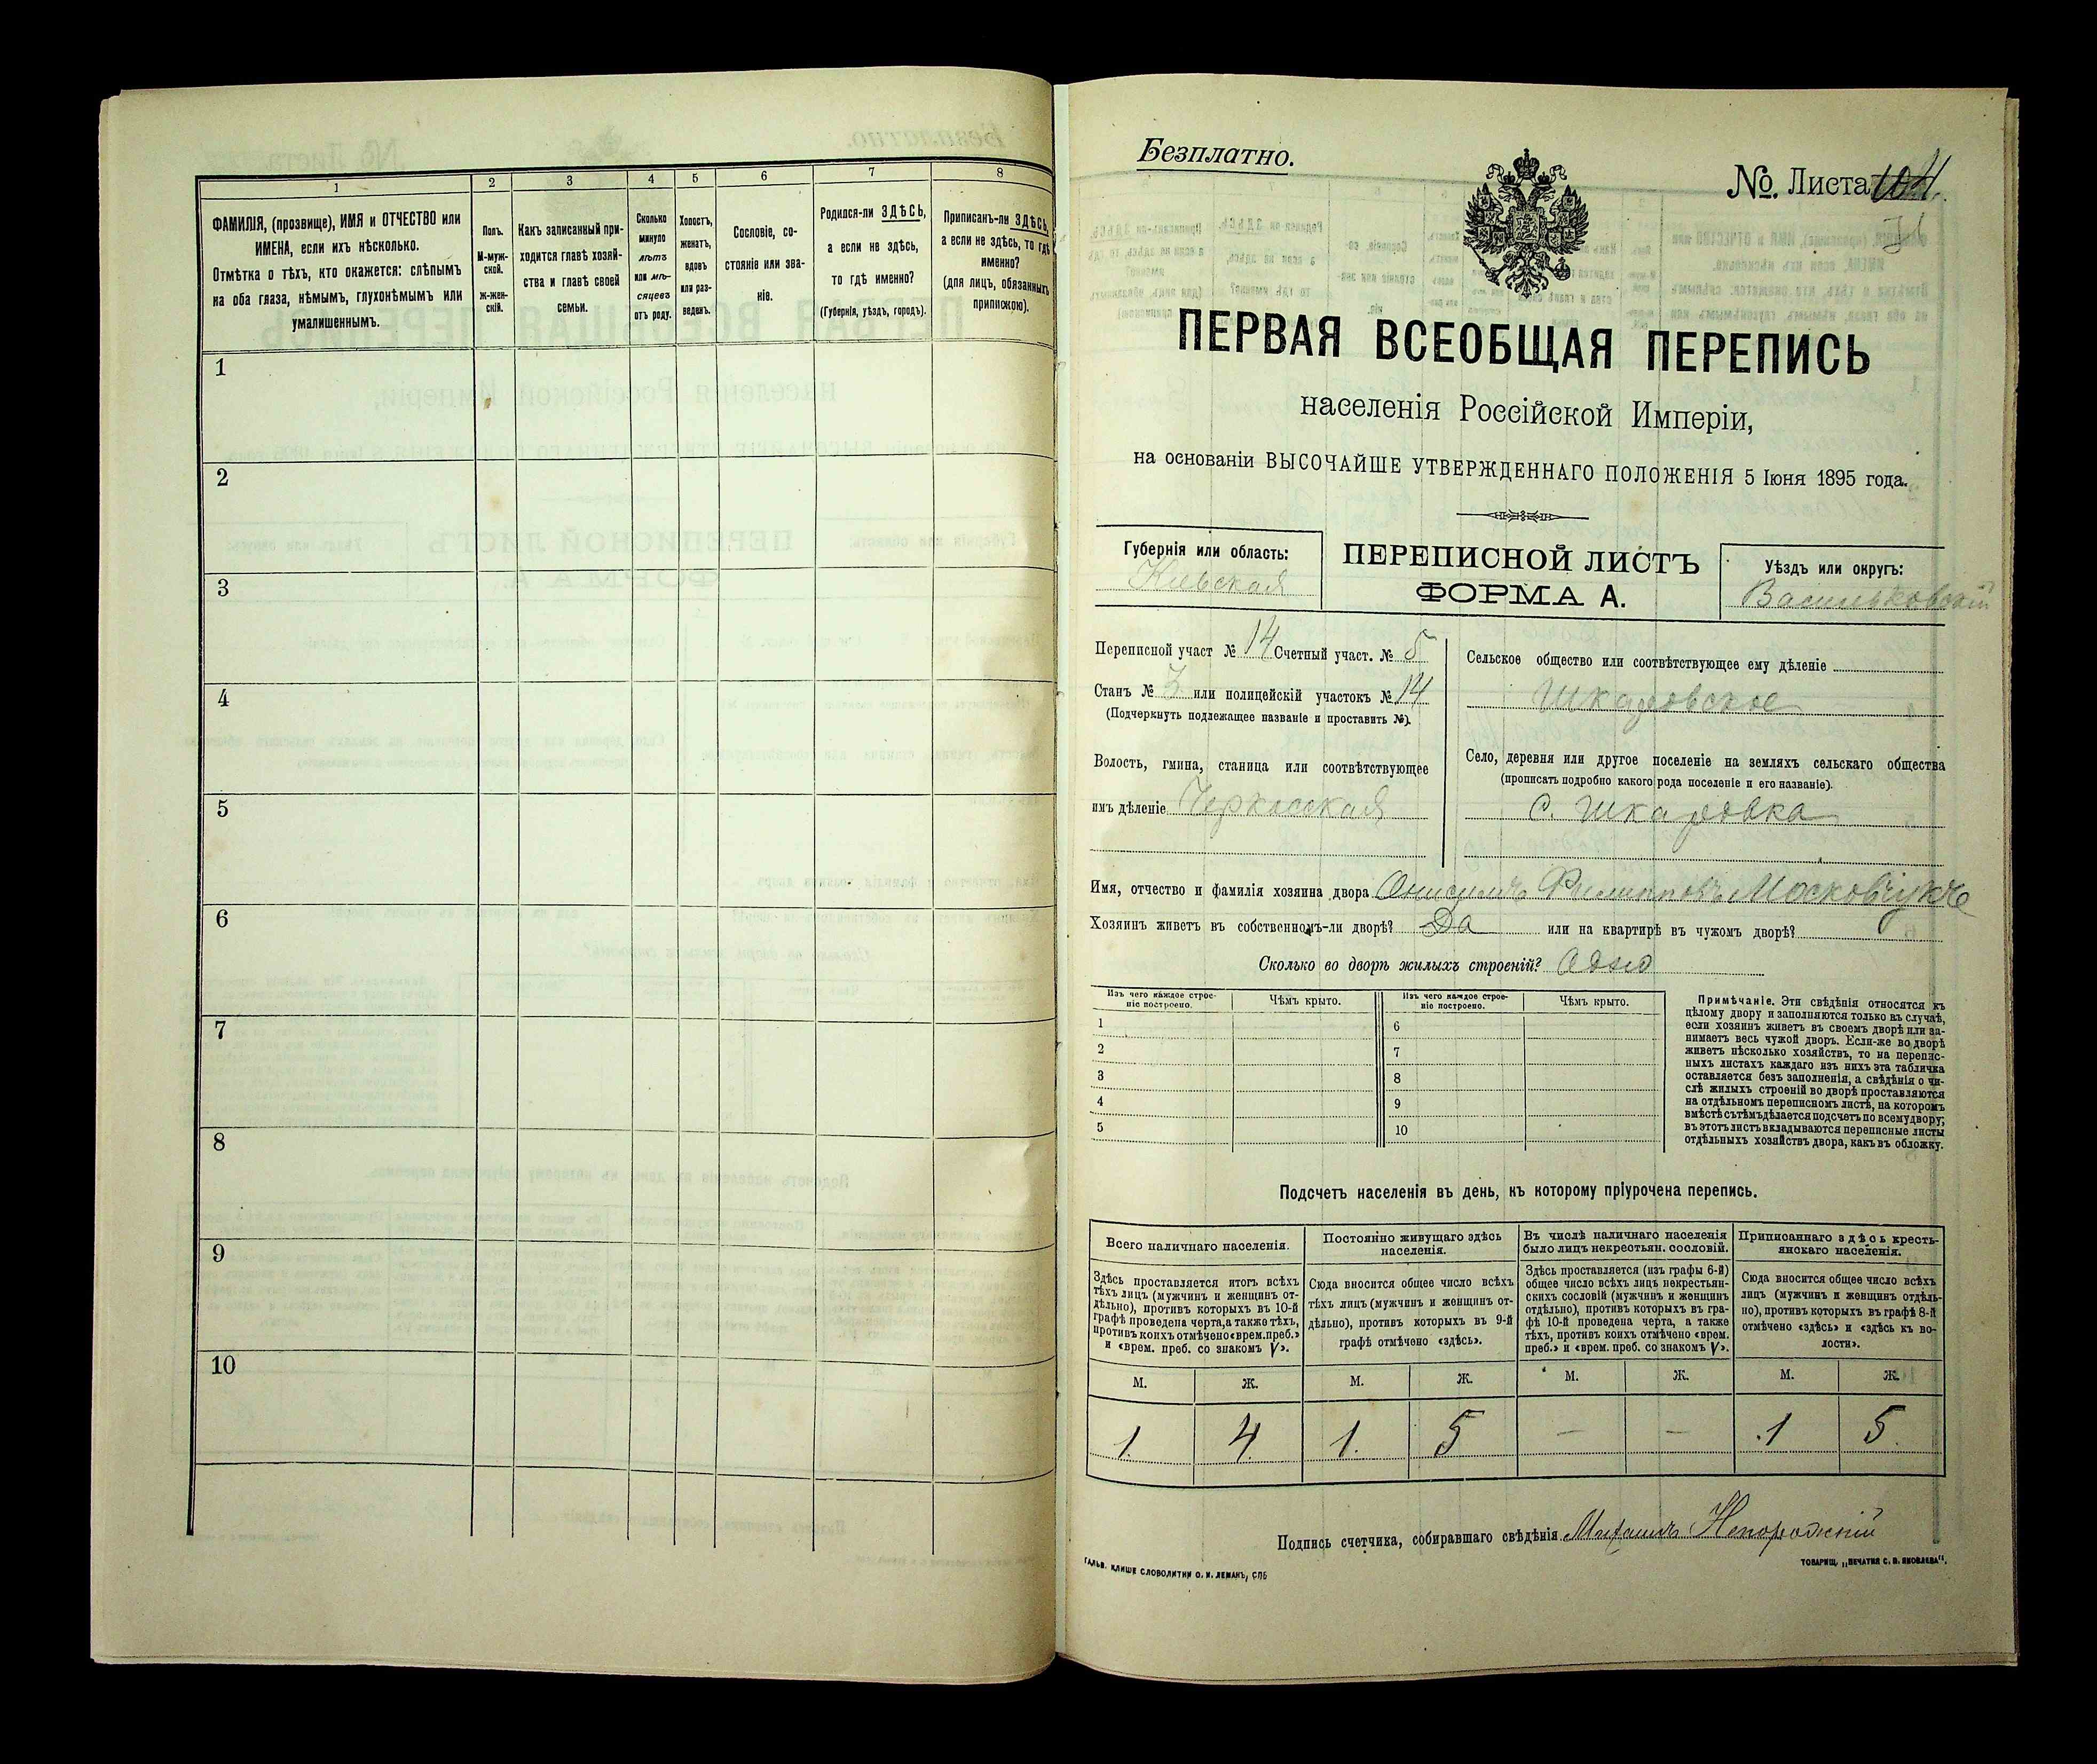 1
2
3
4
5
6
7
8
ФАМИЛІЯ, (прозвище), ИМЯ и ОТЧЕСТВО или
ИМЕНА, если ихъ нѣсколько.
Отмѣтка о тѣхъ, кто окажется: слѣпымъ
на оба глаза, нѣмымъ, глухонѣмымъ или
умалишеннымъ.
Полъ.
М-муж-
ской.
Ж-жен-
скій.
Какъ записанный при-
ходится главѣ хозяй-
ства и главѣ своей
семьи.
Сколько
минуло
лѣтъ
или мѣ-
сяцевъ
отъ роду.
Холостъ,
женатъ,
вдовъ
или раз-
веденъ.
Сословіе, со-
стояніе или зва-
ніе.
Родился-ли ЗДѢСЬ,
а если не здѣсь,
то гдѣ именно?
(Губернія, уѣздъ, городъ).
Приписанъ-ли ЗДѢСЬ,
а если не здѣсь, то гдѣ
именно?
(для лицъ, обязанныхъ
припискою).
1
2
3
4
5
6
7
8
9
10
Безплатно.
№. Листа
ПЕРВАЯ ВСЕОБЩАЯ ПЕРЕПИСЬ
населенія Россійской Имперіи,
на основаніи ВЫСОЧАЙШЕ УТВЕРЖДЕННАГО ПОЛОЖЕНІЯ 5 Іюня 1895 года.
Губернія или область:
Кіевская
ПЕРЕПИСНОЙ ЛИСТЪ
ФОРМА А.
Уѣздъ или округъ:
Васильковскій
Переписной участ № 14 Счетный участ. № 5
Станъ № 3 или полицейскій участокъ № 14
(Подчеркнуть подлежащее названіе и проставить №).
Волость, гмина, станица или соотвѣтствующее
имъ дѣленіе Черкасская
Сельское общество или соотвѣтствующее ему дѣленіе
Шкаровское
Село, деревня или другое поселеніе на земляхъ сельскаго общества
(прописать подробно какого рода поселеніе и его названіе).
С. Шкаровка
Имя, отчество и фамилія хозяина двора Онисимъ Филиповъ Московчукъ
Хозяинъ живетъ въ собственномъ-ли дворѣ? Да или на квартирѣ въ чужомъ дворѣ?
Сколько во дворѣ жилыхъ строеній? Одно
Изъ чего каждое строе-
ніе построено.
Чѣмъ крыто.
Изъ чего каждое строе-
ніе построено.
Чѣмъ крыто.
1
2
3
4
5
6
7
8
9
10
Примѣчаніе. Эти свѣдѣнія относятся къ
цѣлому двору и заполняются только въ случаѣ,
если хозяинъ живетъ въ своемъ дворѣ или за-
нимаетъ весь чужой дворъ. Если-же во дворѣ
живетъ нѣсколько хозяйствъ, то на перепис-
ныхъ листахъ каждаго изъ нихъ эта табличка
оставляется безъ заполненія, а свѣдѣнія о чи-
слѣ жилыхъ строеній во дворѣ проставляются
на отдѣльномъ переписномъ листѣ, на которомъ
вмѣстѣ съ тѣмъ дѣлается подсчетъ по всему двору;
въ этотъ листъ вкладываются переписные листы
отдѣльныхъ хозяйствъ двора, какъ въ обложку.
Подсчетъ населенія въ день, къ которому пріурочена перепись.
Всего наличнаго населенія.
Постоянно живущаго здѣсь
населенія.
Въ числѣ наличнаго населенія
было лицъ некрестьян. сословій.
Приписаннаго здѣсь кресть-
янскаго населенія.
Здѣсь проставляется итогъ всѣхъ
тѣхъ лицъ (мужчинъ и женщинъ от-
дѣльно), противъ которыхъ въ 10-й
графѣ проведена черта, а также тѣхъ,
противъ коихъ отмѣчено «врем. преб.»
и «врем. преб. со знакомъ V».
Сюда вносится общее число всѣхъ
тѣхъ лицъ (мужчинъ и женщинъ от-
дѣльно), противъ которыхъ въ 9-й
графѣ отмѣчено «здѣсь».
Здѣсь проставляется (изъ графы 6-й)
общее число всѣхъ лицъ некрестьян-
скихъ сословій (мужчинъ и женщинъ
отдѣльно), противъ которыхъ въ гра-
фѣ 10-й проведена черта, а также
тѣхъ, противъ коихъ отмѣчено «врем.
преб.» и «врем. преб. со знакомъ V».
Сюда вносится общее число всѣхъ
лицъ (мужчинъ и женщинъ отдѣль-
но), противъ которыхъ въ графѣ 8-й
отмѣчено «здѣсь» и «здѣсь къ во-
лости».
М. Ж. М. Ж. М. Ж. М. Ж.
1. 4 1. 5 — — 1 5
Подпись счетчика, собиравшаго свѣдѣнія Михаилъ
ГАЛЬВ. КЛИШЕ СЛОВОЛИТНИ О. И. ЛЕМАНЪ, СПБ
ТОВАРИЩ. „ПЕЧАТНЯ С. П. ЯКОВЛЕВА“.